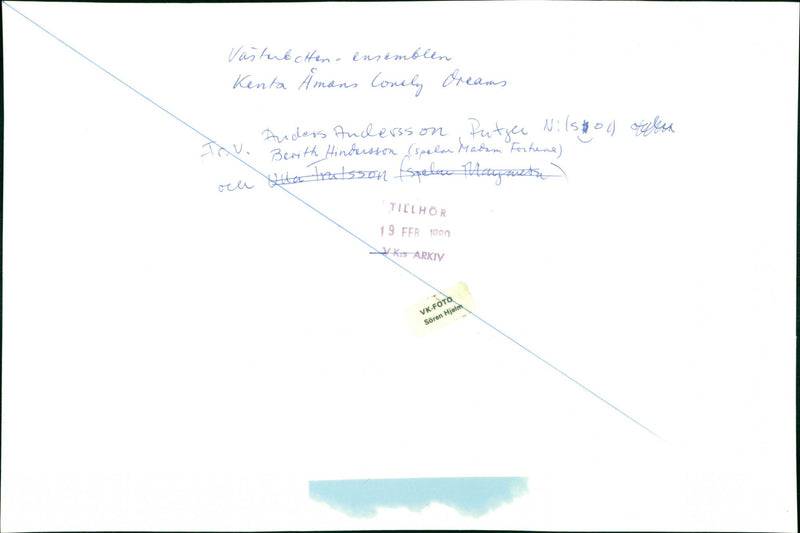 Västerbotten-ensemblen
Kenta Åmans Lonely Dreams
Anders Andersson, Rutger Nilsson
Fr. v. Berith Hindersson (spelar Madam Fortune)
och Ulla Trulsson (spelar Margareta)
TILLHÖR
19 FEB 1990
VK:s ARKIV
VK-FOTO
Sören Hjelm